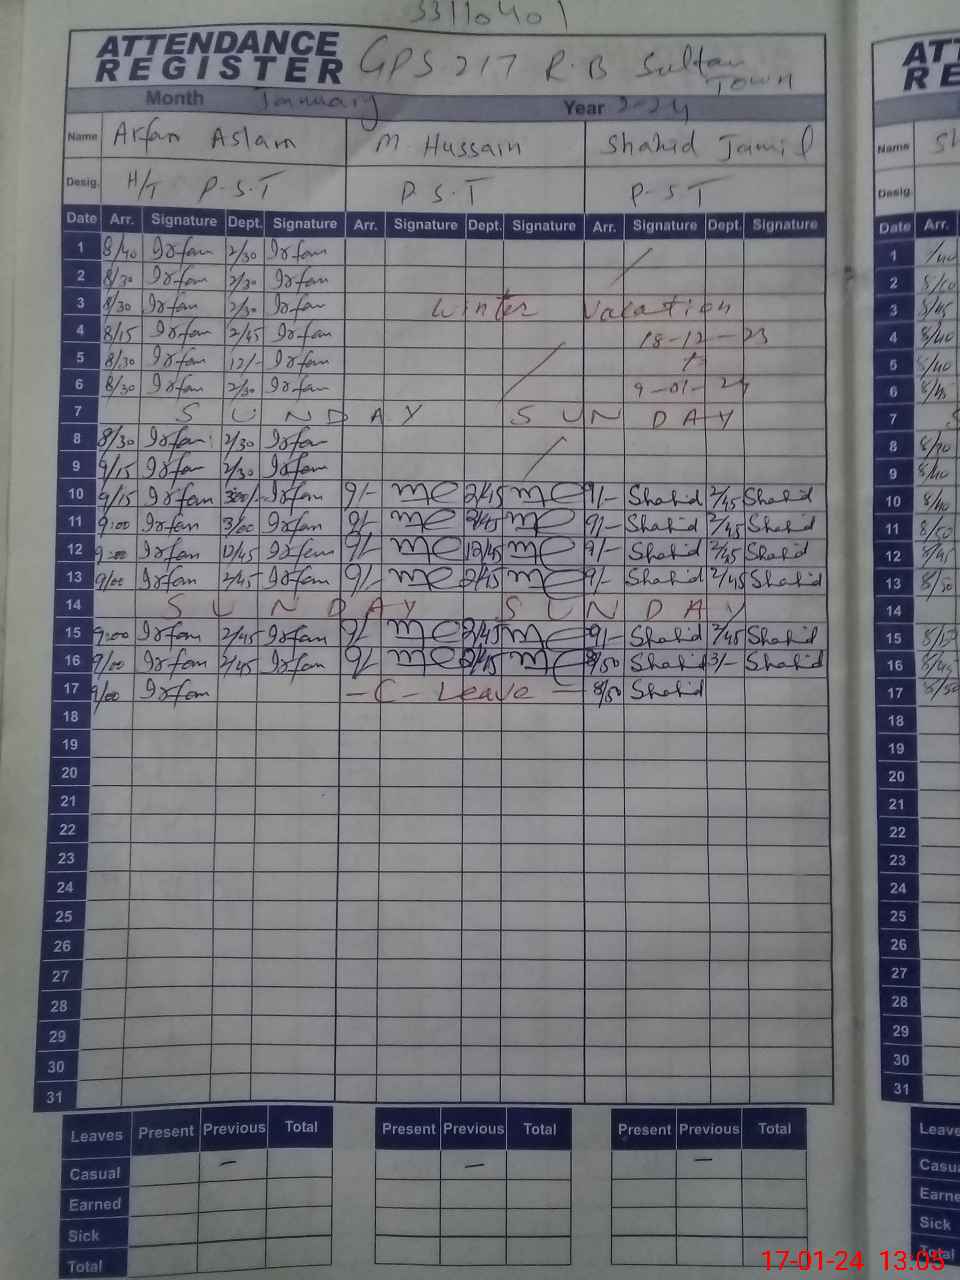 33110401
ATTENDANCE REGISTER GPS 217 R.B Sultan Town
Month January Year 2024
Name Arfan Aslam M. Hussain Shahid Jamil
Desig. H/T P.S.T P.S.T P.S.T
Date Arr. Signature Dept. Signature Arr. Signature Dept. Signature Arr. Signature Dept. Signature
1 8/40 Irfan 2/30 Irfan
2 8/30 Irfan 2/30 Irfan
3 8/30 Irfan 2/30 Irfan Winter Vacation
4 8/15 Irfan 2/45 Irfan 18-12-23
5 8/30 Irfan 12/- Irfan to
6 8/30 Irfan 2/30 Irfan 9-01-24
7 SUNDAY SUNDAY
8 8/30 Irfan 2/30 Irfan
9 9/15 Irfan 2/30 Irfan
10 9/15 Irfan Irfan 9/- 2/45 9/- Shahid 2/45 Shahid
11 9:00 Irfan 3/00 Irfan 9/- 2/45 9/- Shahid 2/45 Shahid
12 9:00 Irfan 12/45 Irfan 9/- 12/45 9/- Shahid Shahid
13 9/00 Irfan 2/45 Irfan 9/- 2/45 9/- Shahid 2/45 Shahid
14 SUNDAY SUNDAY
15 9:00 Irfan 2/45 Irfan 9/- 2/45 9/- Shahid 2/45 Shahid
16 9/00 Irfan 2/45 Irfan 9/- 2/45 8/50 Shahid 3/- Shahid
17 9/00 Irfan - C - Leave - 8/50 Shahid
18
19
20
21
22
23
24
25
26
27
28
29
30
31
Leaves Present Previous Total Present Previous Total Present Previous Total
Casual – – –
Earned
Sick
Total
ATT
RE
Name Sh
Desig.
Date Arr.
1 /40
2
3 8/45
4 8/40
5 8/40
6 8/45
7 S
8
9 8/40
10 8/40
11 8/50
12 8/45
13 8/50
14
15 8/50
16 8/45
17 8/50
18
19
20
21
22
23
24
25
26
27
28
29
30
31
Leave
Casu
Earne
Sick
Total
17-01-24 13:05